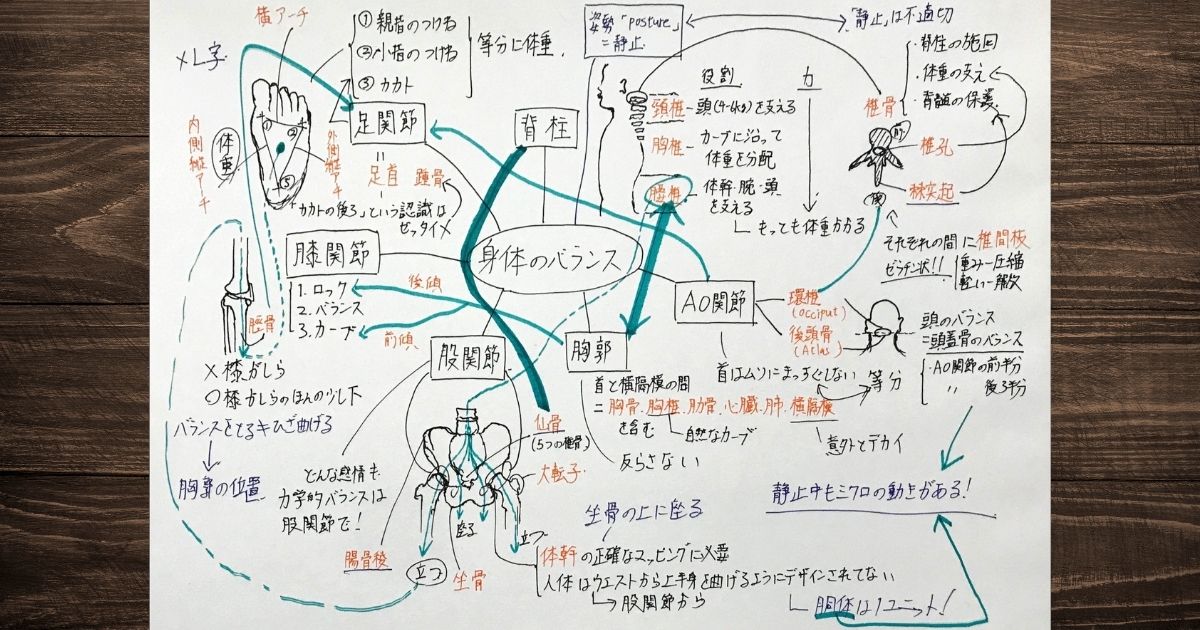 横アーチ
× L字
① 親指のつけね
② 小指のつけね
③ カカト
等分に体重.
姿勢「posture」
=静止
「静止」は不適切
・脊柱の旋回
・体重の支え
・脊髄の保護
椎骨
前
椎孔
棘突起
後
役割
力
頸椎 - 頭(4~6kg)を支える
胸椎 - カーブに沿って
体重を分配
腰椎 - 体幹・腕・頭
を支える
もっても体重かかる
足関節
=
足首 踵骨
「カカトの後ろ」という認識は
ゼッタイ×
背柱
内側縦アーチ
体重
外側縦アーチ
それぞれの間に椎間板
ゼラチン状!!
重み-圧縮
軽い-解放
膝関節
1. ロック
2. バランス
3. カーブ
後傾
前傾
脛骨
身体のバランス
AO関節
環椎
(occiput)
後頭骨
(Atlas)
頭のバランス
=頭蓋骨のバランス
・AO関節の前半分
〃 後ろ半分
等分
首はムリにまっすぐしない
股関節
胸郭
× 膝がしら
○ 膝がしらのほんの少し下
バランスをとるキひざ曲げる
胸郭の位置
首と横隔膜の間
=胸骨.胸椎.肋骨.心臓.肺.横隔膜
を含む
自然なカーブ
意外とデカイ
反らさない
仙骨
(5つの椎骨)
大転子
どんな感情も
力学的バランスは
股関節で!
腸骨稜
坐る
立つ
立つ
坐骨
坐骨の上に座る
体幹の正確なマッピングに必要
人体はウエストから上半身を曲げるようにデザインされてない
股関節から
静止中もミクロの動きがある!
胴体は1ユニット!